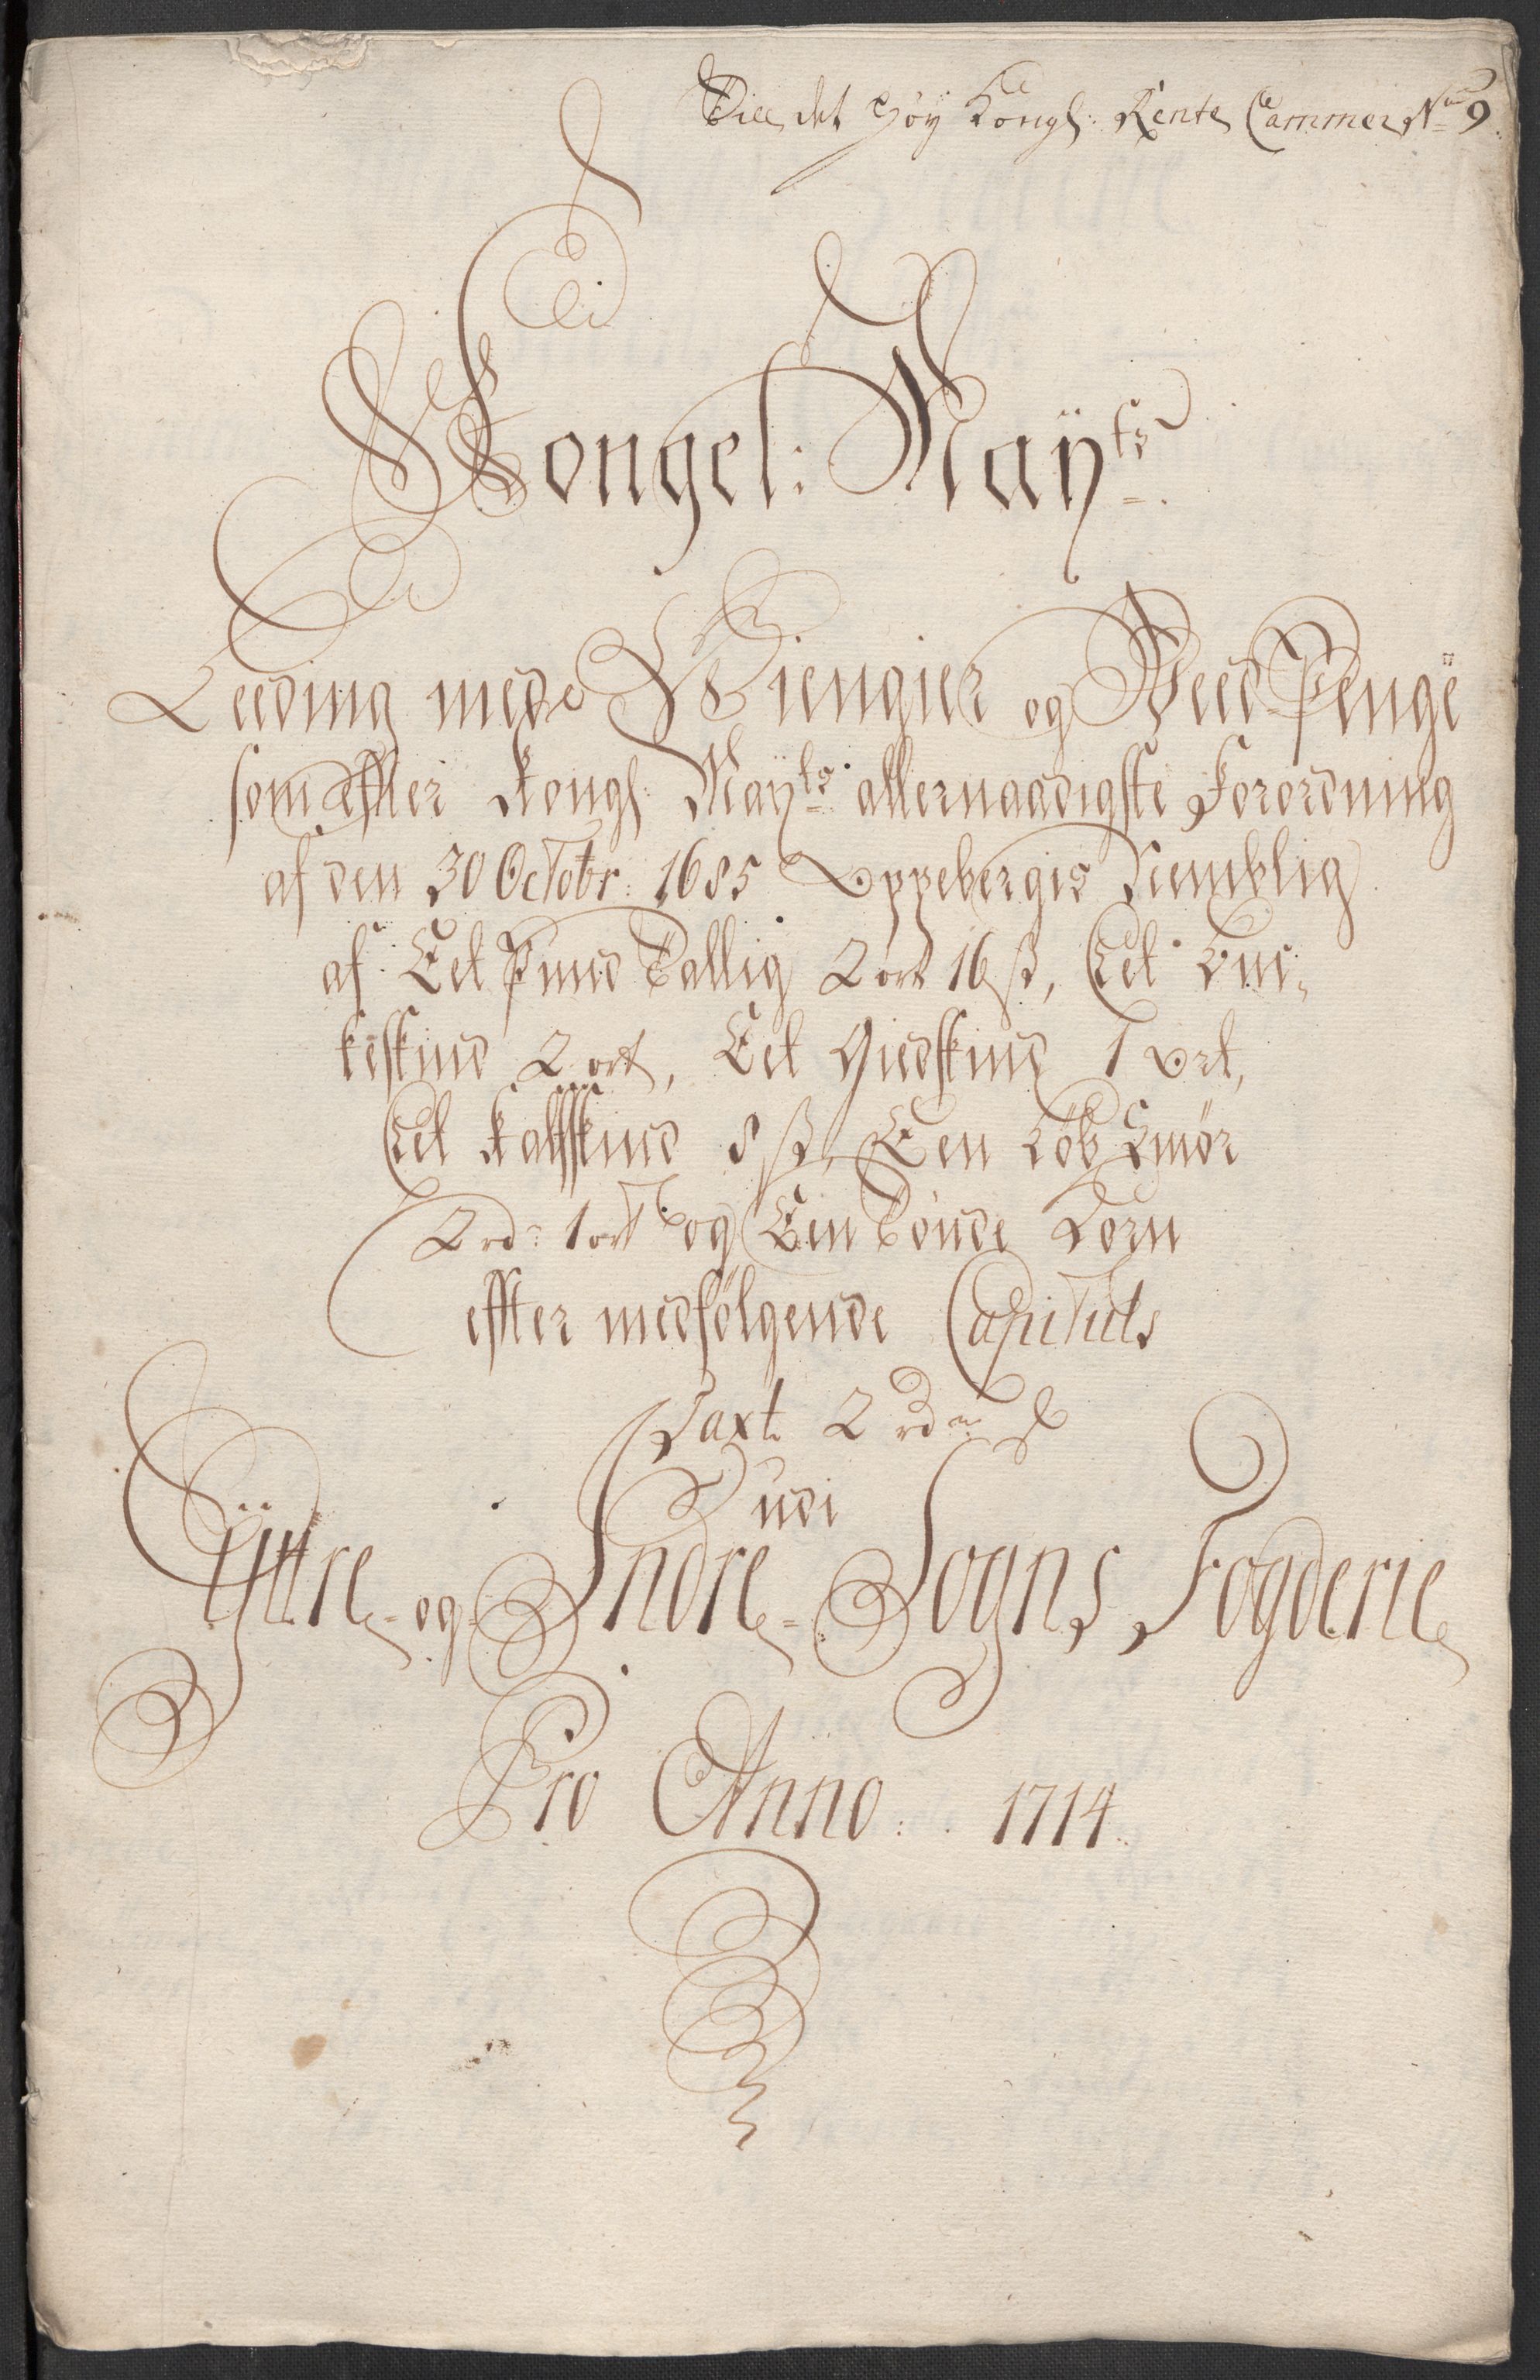 Till det høy Kongl: Rente Cammer No 9
Kongel: Mayts
Leeding med Giengier og Weed Penge
som effter Kongl: Mayts allernaadigste Forordning
af den 30 Octobr: 1685 Oppebergis Nemblig
af Eet Pund Tallig 2 ort 16 ß, Eet Buc-
keskind 2 ort, Eet Giedskind 1 ort,
Eet Kalfskind 8 ß, Een Løb Smør
2 rdr 1 ort og Een Tønde Korn
effter medfølgende Capituls
Taxt 2 rdr
udi
Yttre og Indre Sogns Fogderie
Pro Anno 1714